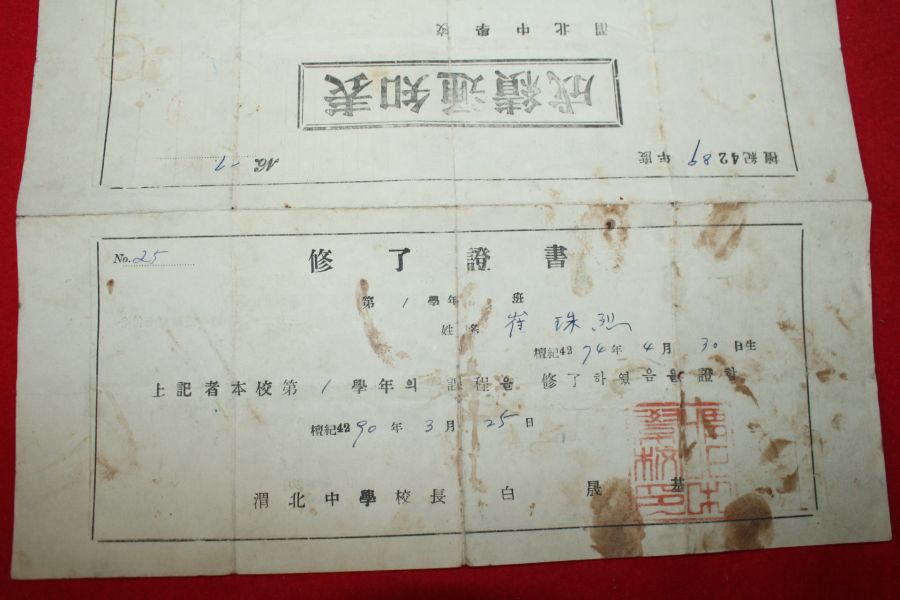 渭北中學校
成績通知表
檀紀4289年度
No. 1
No. 25
修了證書
第 1 學年 班
姓名 崔珠烈
檀紀4274年 4月 30日生
上記者本校第 1 學年의 課程을 修了하였음을 證함
檀紀4290年 3月 25日
渭北中學校長 白晟基